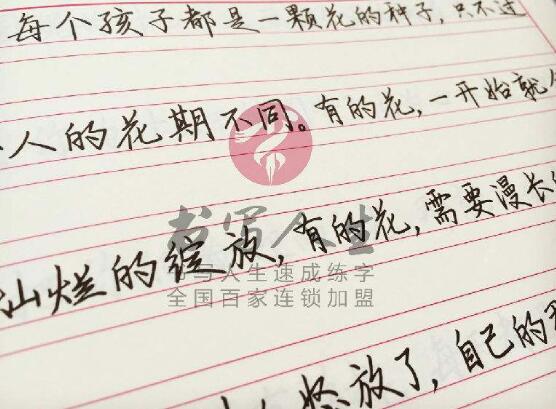 每个孩子都是一颗花的种子，只不过
人的花期不同。有的花，一开始就
灿烂的绽放，有的花，需要漫长
书写人生
书写人生速成练字
全国百家连锁加盟
放了，自己的